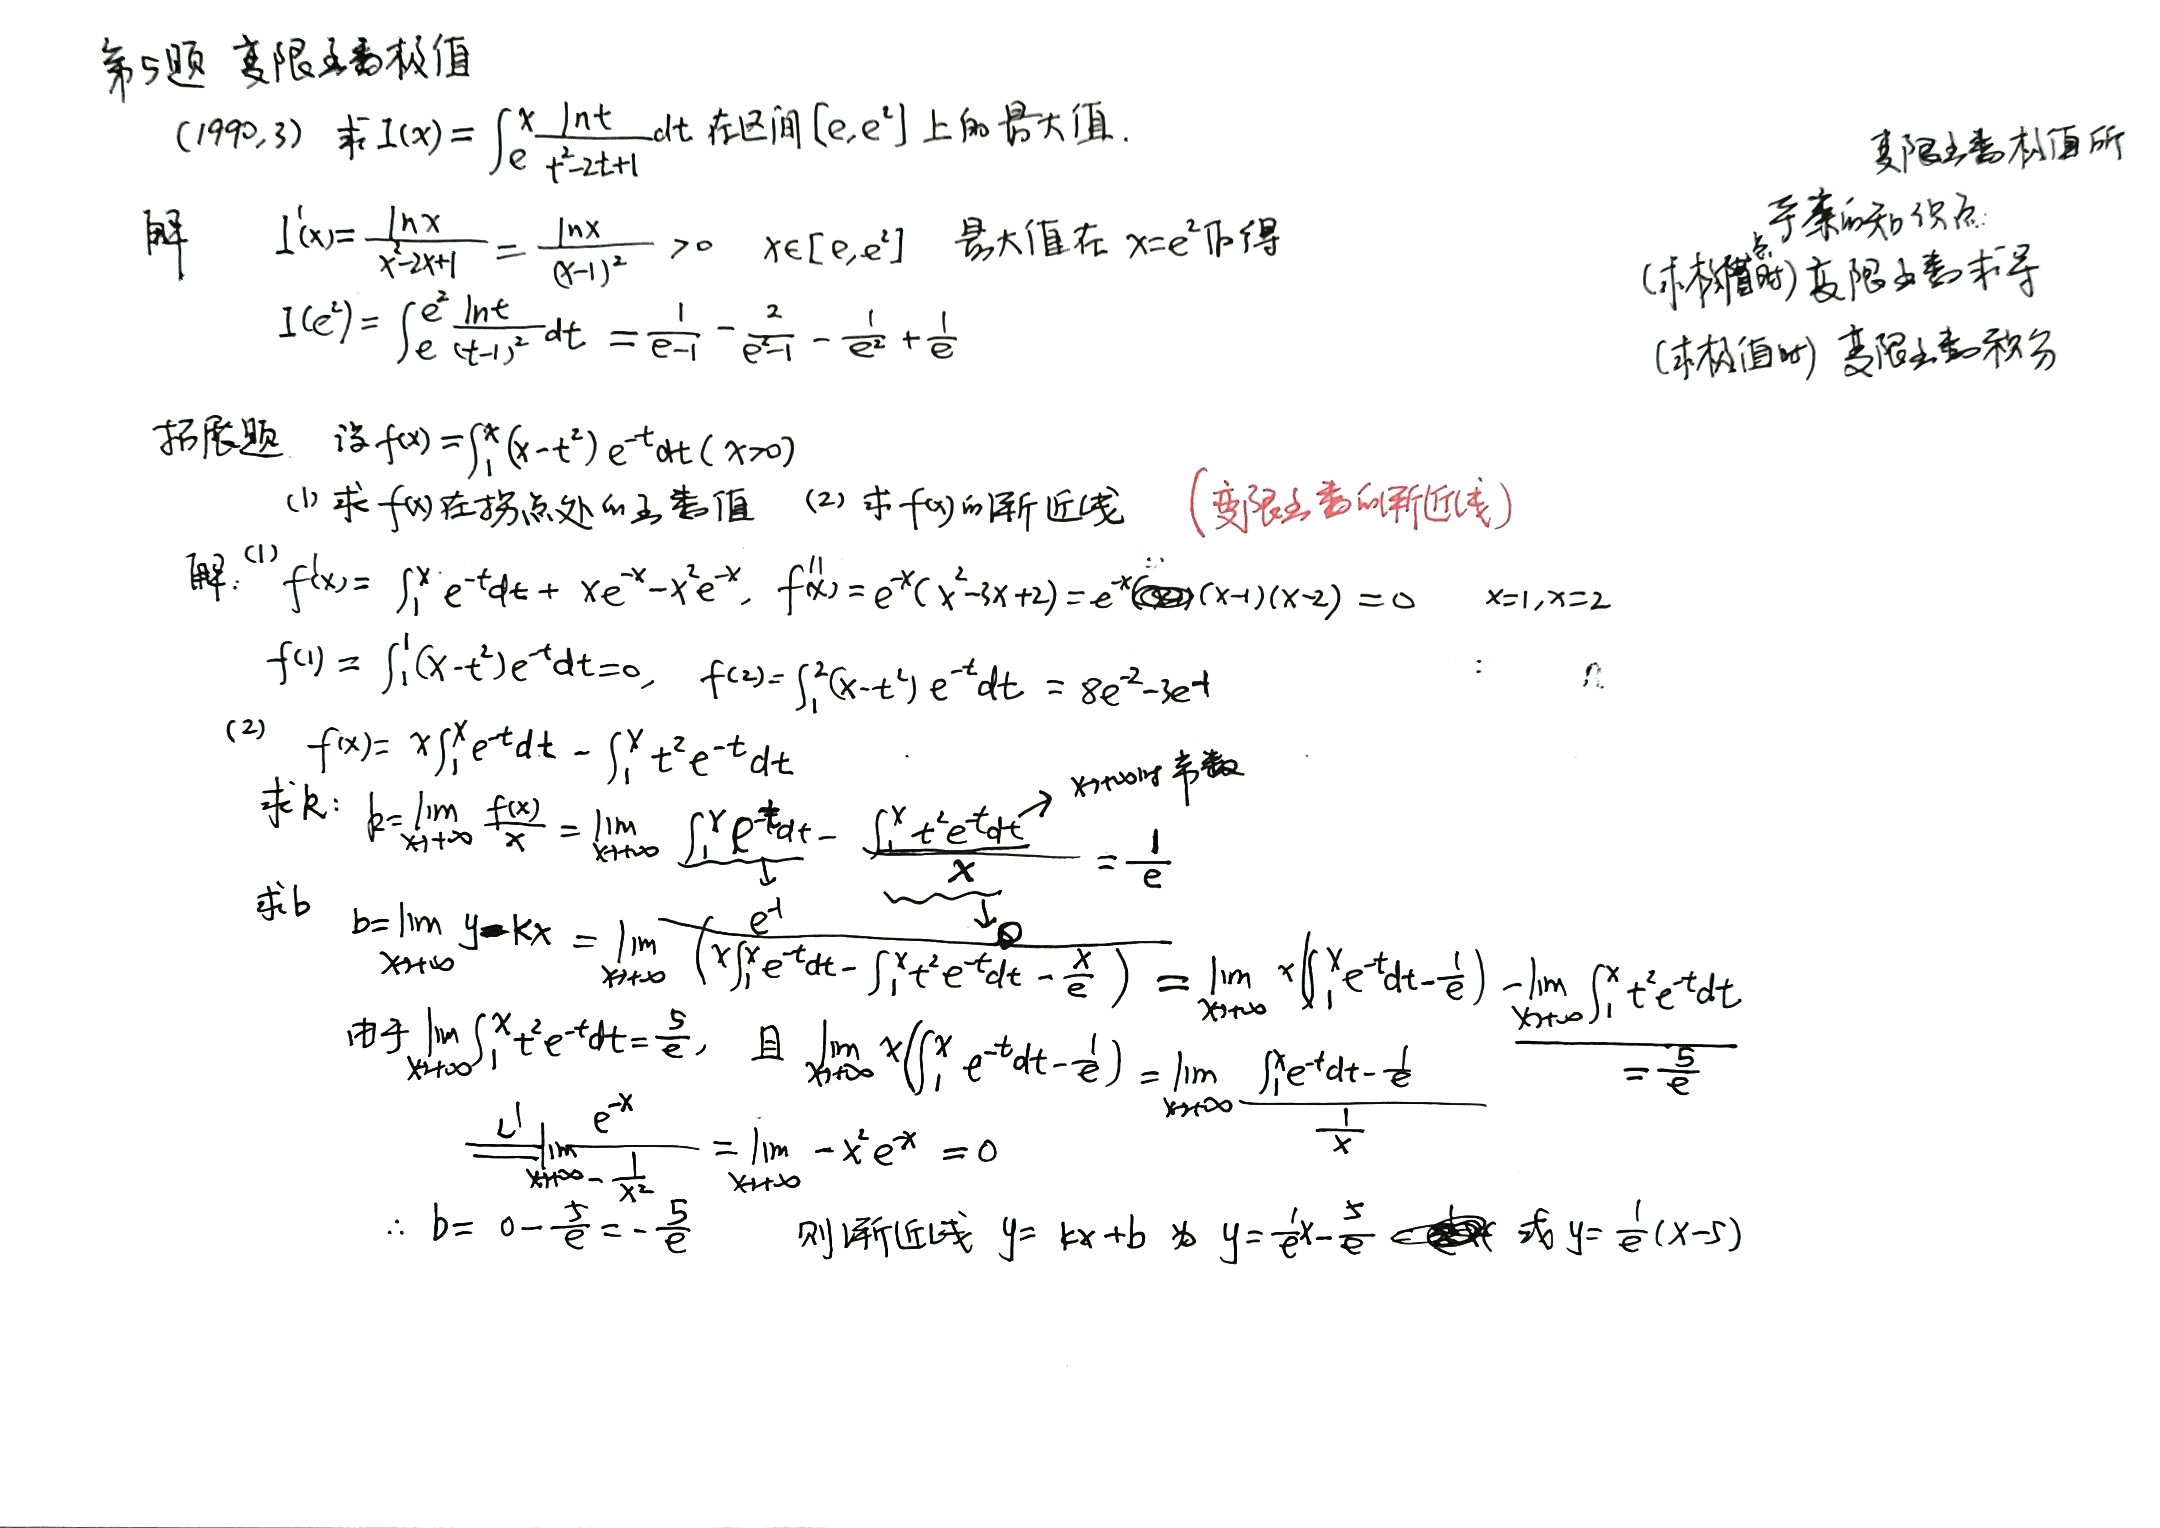 第5题 变限函数极值
(1990,3) 求 I(x) = ∫_e^x \frac{ln t}{t²-2t+1} dt 在区间 [e, e²] 上的最大值.
变限函数极值所
考察的知识点:
(求极值点时) 变限函数求导
(求极值时) 变限函数积分
解 I'(x) = \frac{ln x}{x²-2x+1} = \frac{ln x}{(x-1)²} > 0 x∈[e, e²] 最大值在 x=e² 取得
I(e²) = ∫_e^{e²} \frac{ln t}{(t-1)²} dt = \frac{1}{e-1} - \frac{2}{e²-1} - \frac{1}{e²} + \frac{1}{e}
拓展题 设 f(x) = ∫_1^x (x-t²) e^{-t} dt (x>0)
(1) 求 f(x) 在拐点处的函数值 (2) 求 f(x) 的渐近线 (变限函数的渐近线)
解: (1) f'(x) = ∫_1^x e^{-t} dt + xe^{-x} - x²e^{-x}, f''(x) = e^{-x}(x²-3x+2) = e^{-x}(x-1)(x-2) = 0 x=1, x=2
f(1) = ∫_1^1 (x-t²) e^{-t} dt = 0, f(2) = ∫_1^2 (x-t²) e^{-t} dt = 8e^{-2} - 3e^{-1}
(2) f(x) = x∫_1^x e^{-t} dt - ∫_1^x t² e^{-t} dt
求k: k = lim_{x→+∞} \frac{f(x)}{x} = lim_{x→+∞} ∫_1^x e^{-t} dt - \frac{∫_1^x t² e^{-t} dt}{x} = \frac{1}{e}
x→+∞时 常数
↓ e^{-1} ↓ 0
求b b = lim_{x→+∞} y-kx = lim_{x→+∞} (x∫_1^x e^{-t} dt - ∫_1^x t² e^{-t} dt - \frac{x}{e}) = lim_{x→+∞} x(∫_1^x e^{-t} dt - \frac{1}{e}) - lim_{x→+∞} ∫_1^x t² e^{-t} dt
= \frac{5}{e}
由于 lim_{x→+∞} ∫_1^x t² e^{-t} dt = \frac{5}{e}, 且 lim_{x→+∞} x(∫_1^x e^{-t} dt - \frac{1}{e}) = lim_{x→+∞} \frac{∫_1^x e^{-t} dt - \frac{1}{e}}{\frac{1}{x}}
\overset{L'}{=} lim_{x→+∞} \frac{e^{-x}}{-\frac{1}{x²}} = lim_{x→+∞} -x² e^{-x} = 0
∴ b = 0 - \frac{5}{e} = -\frac{5}{e} 则渐近线 y = kx+b 为 y = \frac{1}{e}x - \frac{5}{e} 或 y = \frac{1}{e}(x-5)